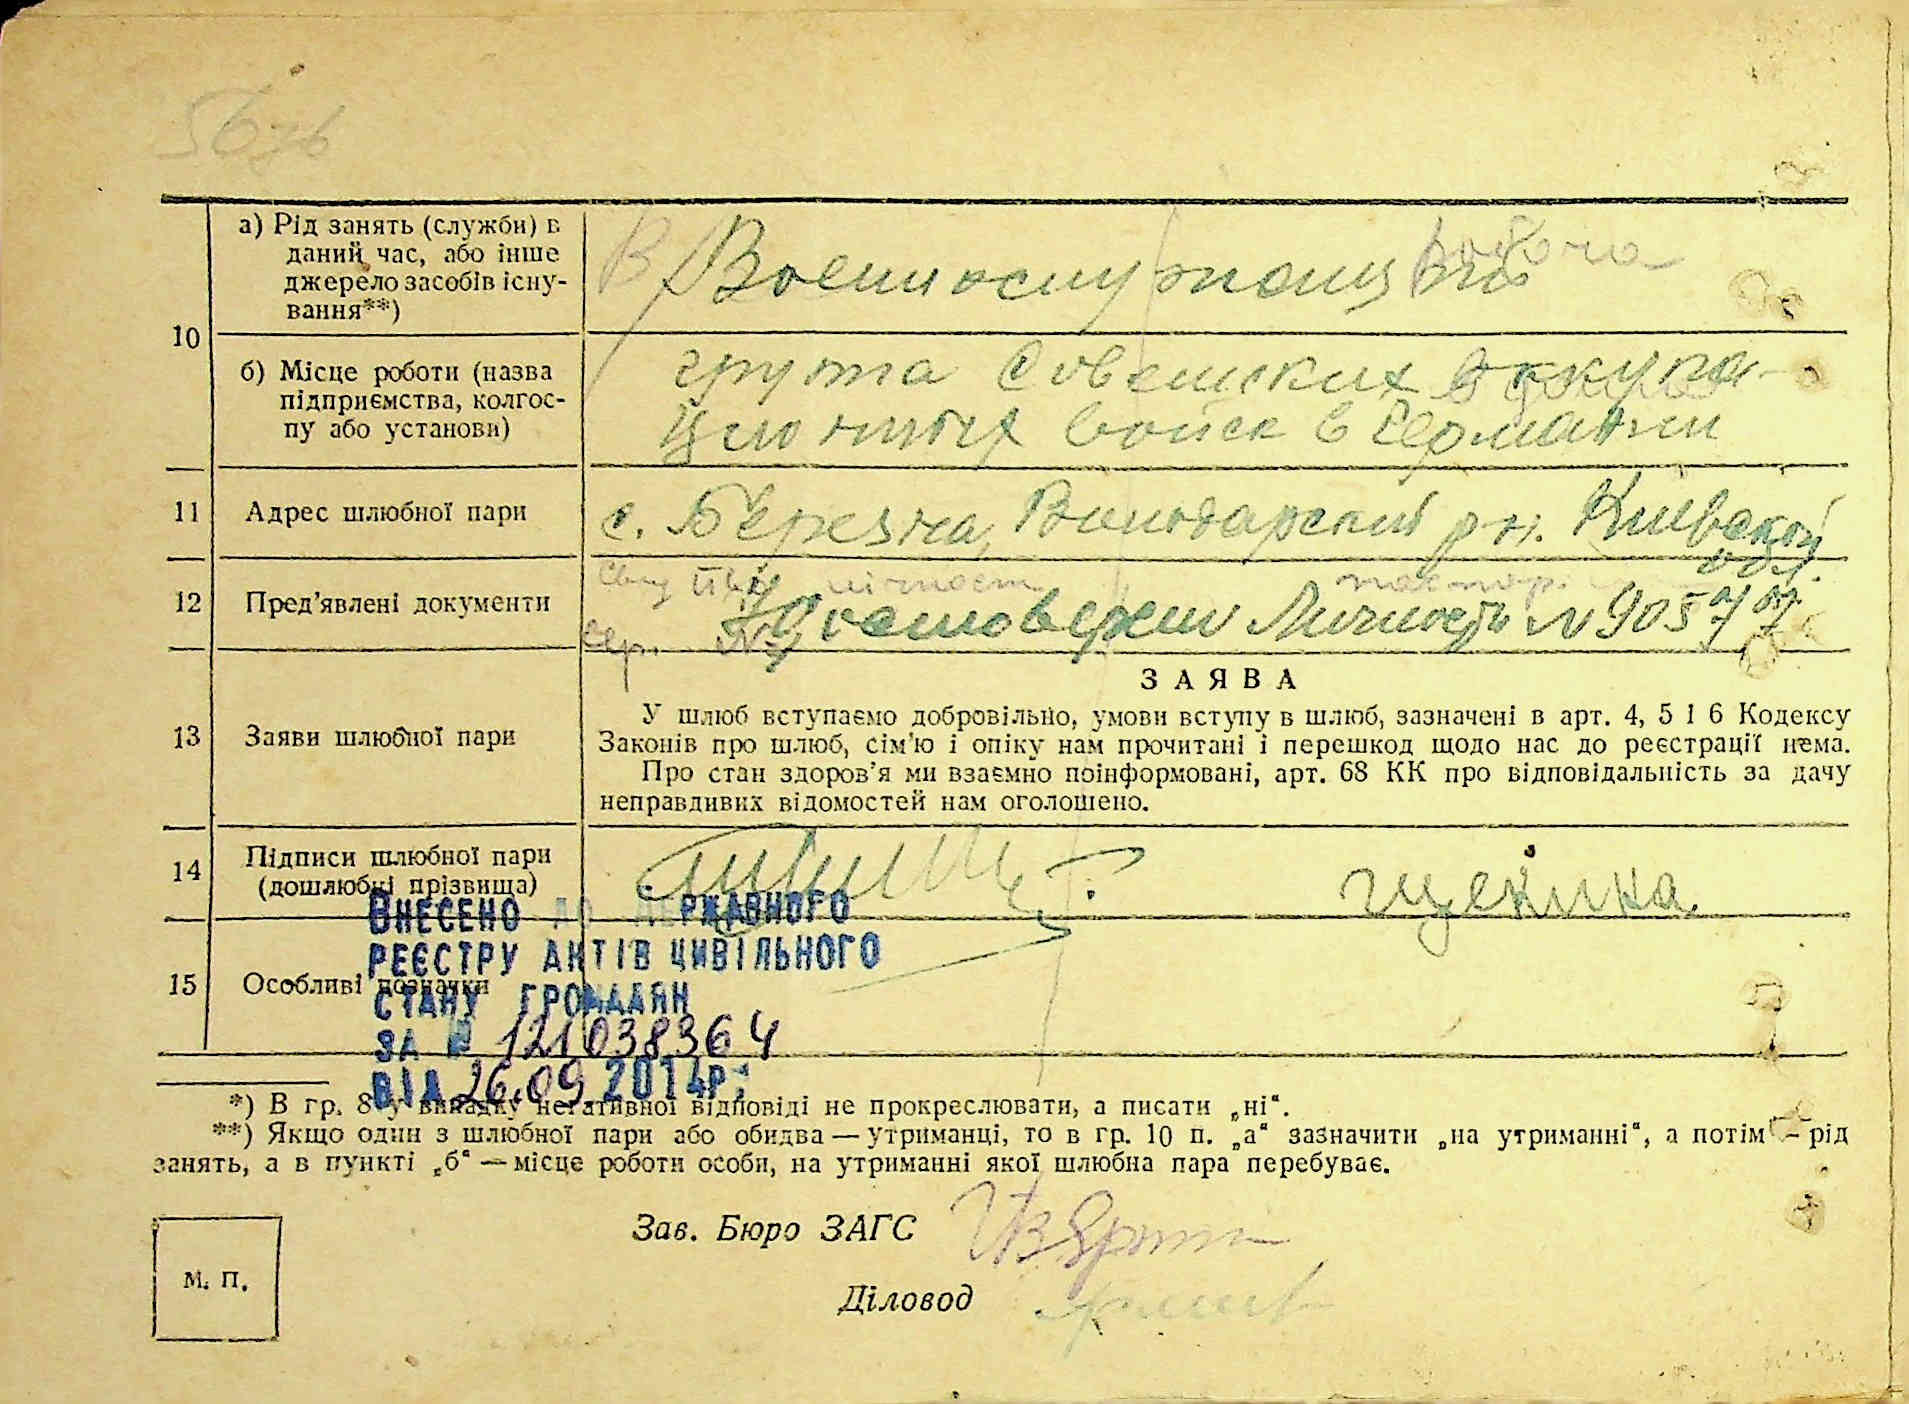 10
а) Рід занять (службн) в
даний час, або інше
джерело засобів існу-
вання**)
Военнослужащий
робоча
б) Місце роботи (назва
підприємства, колгос-
пу або установи)
група Советских оккупа-
ционных войск в Германии
11
Адрес шлюбної пари
с. Березна, Володарский р-н. Киевской
обл.
12
Пред’явлені документи
паспор.
Удостоверен Личности №90577
Сер. №
13
Заяви шлюбної пари
ЗАЯВА
У шлюб вступаємо добровільно, умови вступу в шлюб, зазначені в арт. 4, 5 і 6 Кодексу
Законів про шлюб, сім’ю і опіку нам прочитані і перешкод щодо нас до реєстрації нема.
Про стан здоров’я ми взаємно поінформовані, арт. 68 КК про відповідальність за дачу
неправдивих відомостей нам оголошено.
14
Підписи шлюбної пари
(дошлюбні прізвища)
Щекіна
15
Особливі позначки
Внесено до Державного
реєстру актів цивільного
стану громадян
за № 12103836 4
від 26.09.2014р.
*) В гр. 8 у випадку негативної відповіді не прокреслювати, а писати „ні“.
**) Якщо один з шлюбної пари або обидва — утриманці, то в гр. 10 п. „а“ зазначити „на утриманні“, а потім — рід
занять, а в пункті „б“ — місце роботи особи, на утриманні якої шлюбна пара перебуває.
Зав. Бюро ЗАГС
Діловод
М. П.